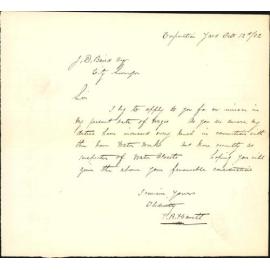 Corporation Yard Oct 12th/02
J. D. Baird Esq
City Surveyor
Sir
I beg to apply to you for an increase in
my present rate of wages. As you are aware my
duties have increased very much in connection with
the new Water Works and have recently as
inspector of Water Closets hoping you will
give the above your favourable consideration
I remain Yours
Obediently